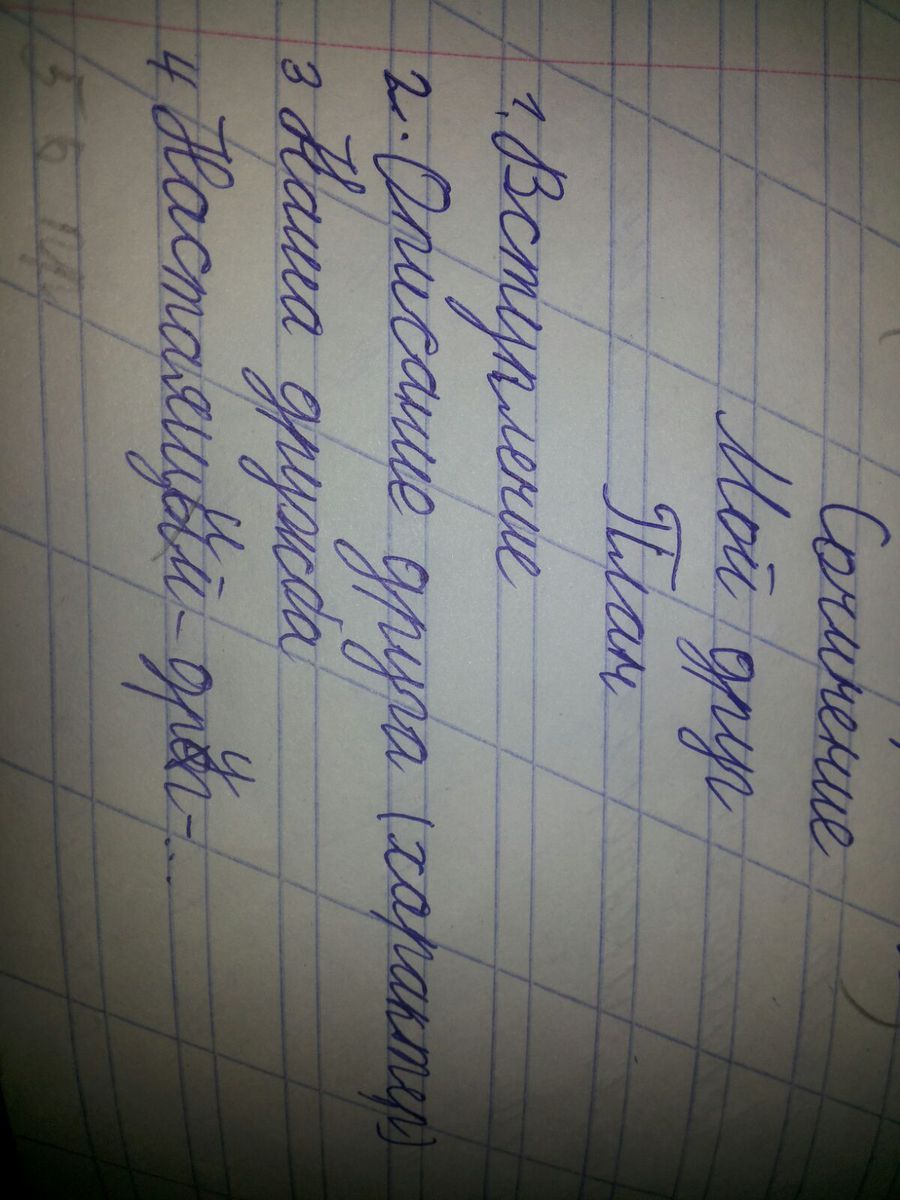 Сочинение
Мой друг
План
1. Вступление
2. Описание друга (характер)
3 Наша дружба
4 Настоящий - друг - ...